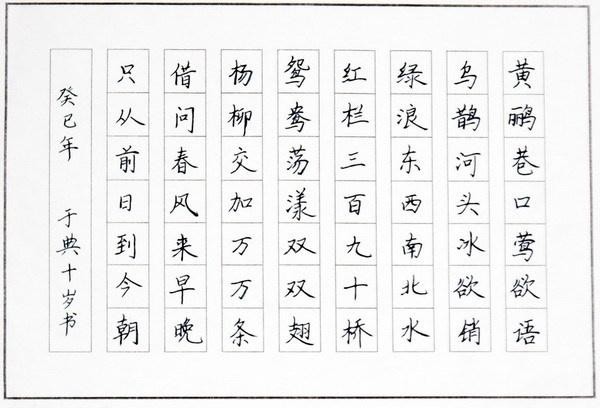 黄鹂巷口莺欲语
乌鹊河头冰欲销
绿浪东西南北水
红栏三百九十桥
鸳鸯荡漾双双翅
杨柳交加万万条
借问春风来早晚
只从前日到今朝
癸巳年 于典十岁书